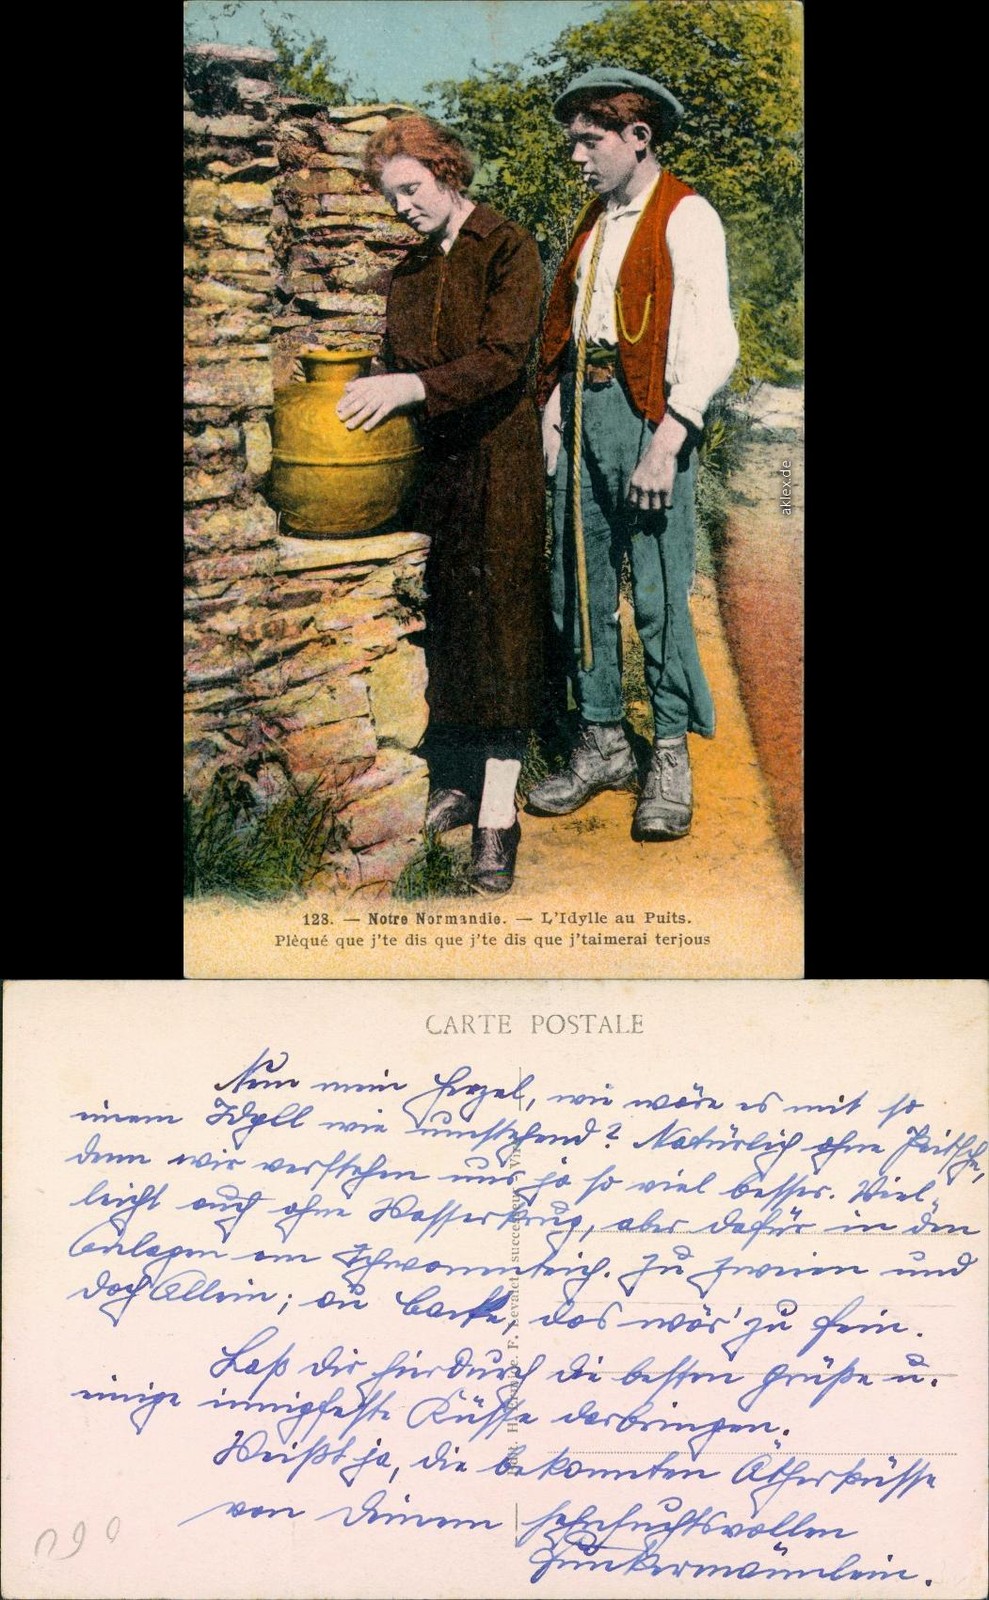 128. — Notre Normandie. — L'Idylle au Puits.
Plèqué que j'te dis que j'te dis que j'taimerai terjous
aklex.de
CARTE POSTALE
Nun mein Herzel, wie wäre es mit so
einem Idyll wie umstehend? Natürlich ohne Peitsche,
denn wir verstehen uns ja so viel besser. Viel-
leicht auch ohne Wasserkrug, aber dafür in den
Anlagen am Schwanenteich. Zu Zweien und
doch Allein; au Backe, das wär' zu fein.
Laß dir hierdurch die besten Grüße u.
einige innigheiße Küsse darbringen.
Weißt ja, die bekannten Ätherküsse
von Deinem sehnsuchtsvollen
Funkermännlein.
F. Levalet, successeur